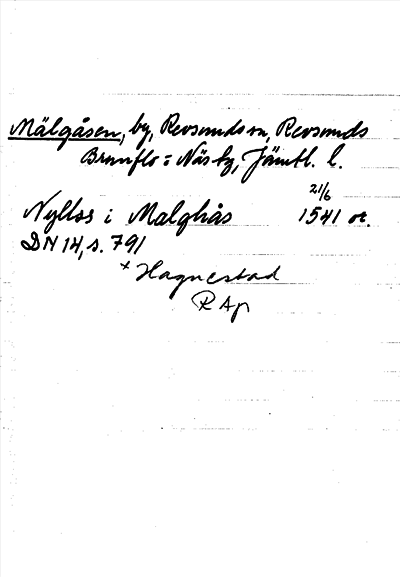 Mälgåsen, by, Revsunds sn, Revsunds
Brunflo o Näs tg, Jämtl. l.
21/6
Nyllos i Malghås 1541 or.
DN 14, s. 791
+ Hagnestad
R Ap